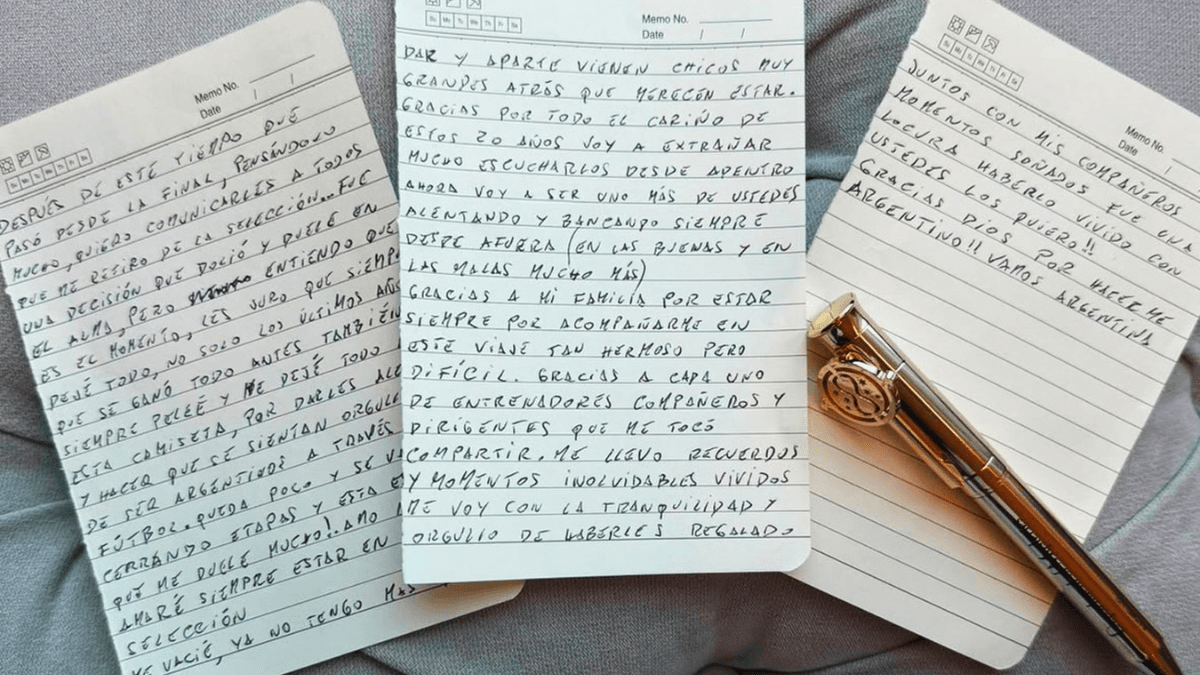 Memo No.
Date / /
Su Mo Tu We Th Fr Sa
DESPUÉS DE ESTE TIEMPO QUE
PASÓ DESDE LA FINAL, PENSÁNDOLO
MUCHO, QUIERO COMUNICARLES A TODOS
QUE ME RETIRO DE LA SELECCIÓN... FUE
UNA DECISIÓN QUE DOLIÓ Y DUELE EN
EL ALMA, PERO ENTIENDO QUE
ES EL MOMENTO, LES JURO QUE SIEMP
DEJÉ TODO, NO SOLO LOS ÚLTIMOS AÑOS
QUE SE GANÓ TODO ANTES TAMBIÉN
SIEMPRE PELEÉ Y ME DEJÉ TODO
ESTA CAMISETA, POR DARLES ALE
Y HACER QUE SE SIENTAN ORGULL
DE SER ARGENTINOS A TRAVÉS
FÚTBOL. QUEDA POCO Y SE VA
CERRANDO ETAPAS Y ESTA E
QUE ME DUELE MUCHO!. AMO
AMARÉ SIEMPRE ESTAR EN
SELECCIÓN
ME VACIÉ, YA NO TENGO MAS
Su Mo Tu We Th Fr Sa
Memo No.
Date / /
DAR Y APARTE VIENEN CHICOS MUY
GRANDES ATRÁS QUE MERECEN ESTAR.
GRACIAS POR TODO EL CARIÑO DE
ESTOS 20 AÑOS VOY A EXTRAÑAR
MUCHO ESCUCHARLOS DESDE ADENTRO
AHORA VOY A SER UNO MÁS DE USTEDES
ALENTANDO Y BANCANDO SIEMPRE
DESDE AFUERA (EN LAS BUENAS Y EN
LAS MALAS MUCHO MÁS)
GRACIAS A MI FAMILIA POR ESTAR
SIEMPRE POR ACOMPAÑARME EN
ESTE VIAJE TAN HERMOSO PERO
DIFÍCIL. GRACIAS A CADA UNO
DE ENTRENADORES COMPAÑEROS Y
DIRIGENTES QUE ME TOCÓ
COMPARTIR. ME LLEVO RECUERDOS
Y MOMENTOS INOLVIDABLES VIVIDOS
ME VOY CON LA TRANQUILIDAD Y
ORGULLO DE HABERLES REGALADO
Su Mo Tu We Th Fr Sa
Memo No.
Date /
JUNTOS CON MIS COMPAÑEROS
MOMENTOS SOÑADOS FUE UNA
LOCURA HABERLO VIVIDO CON
USTEDES LOS QUIERO!!
GRACIAS DIOS POR HACERME
ARGENTINO!! VAMOS ARGENTINA